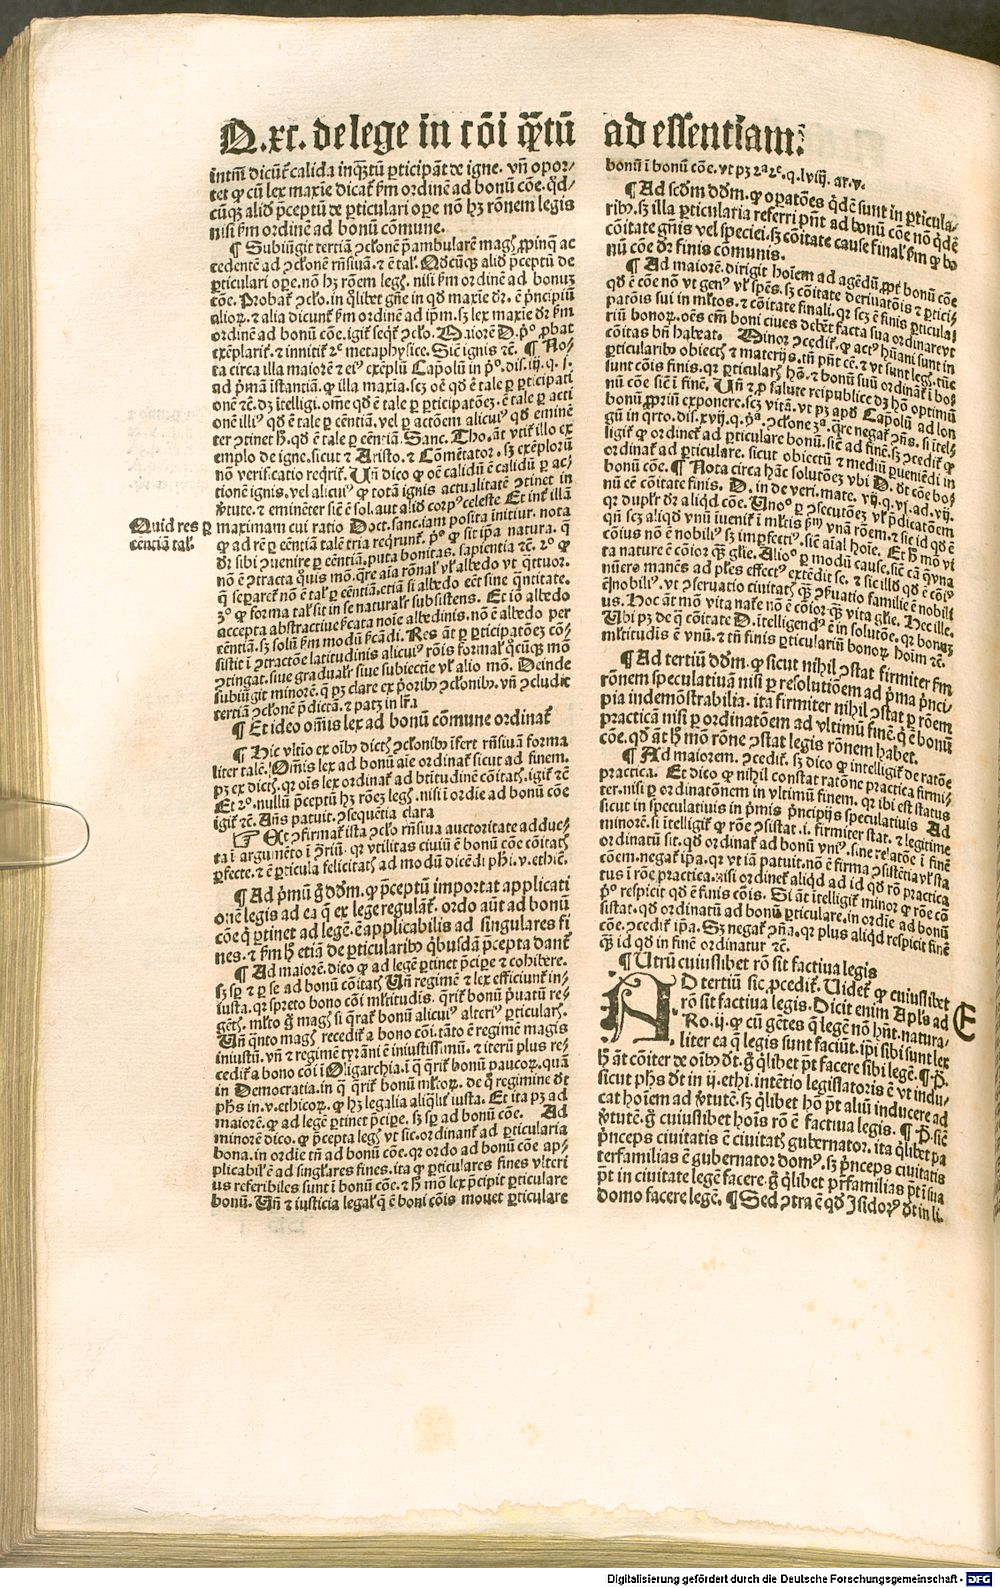 Q.xc. de lege in cōi q̄ꝫtū ad essentiam.
intm̄ dicūt̄ calida inq̄ꝫtū ꝑticipāt de igne. vn̄ opor⸗
tet ꝙ cū lex maxīe dicat̄ ẜm ordinē ad bonū cōe. qd⸗
cūqꝫ aliđ p̄ceptū de ꝑticulari oꝑe nō hꝫ rōnem legis
nisi ẜm ordinē ad bonū cōmune.
¶ Subiūgit tertiā ↄclonē
cedentē ad ↄclonē rn̄siuā. ⁊ ē tal̓. Qđcūqꝫ aliđ p̄ceptū de
ꝑticulari oꝑe. nō hꝫ rōem leg̓. nisi ẜm ordinē ad bonuꝫ
cōe. Probat̄ ↄclo. in q̄libet gn̄e in qđ maxīe dr̄. ē p̄ncipiū
alioꝝ. ⁊ alia dicunt̄ ẜm ordinē ad ip̄m. sꝫ lex maxīe dr̄ ẜm
ordinē ad bonū cōe. igit̄ seqt̄ ↄclo. Maiorē D. pº. ꝓbat
exēplarit̄. ⁊ innitit̄ 2º metaphysice. Siē ignis ⁊c. ¶ No⸗
ta circa illa maiorē ⁊ eiꝰ exēplū Capolū in pº. dis. iij. q. j.
ad p̄mā īstantiā. ꝙ illa maxīa. scꝫ oē qđ ē tale ꝑ ꝑticipati
onē ⁊c. dꝫ ītelligi. om̄e qđ ē tale ꝑ ꝑticipatōeꝫ. ē tale ꝑ acti
onē illiꝰ qđ ē tale ꝑ eēntiā. vel ꝑ actōem alicuiꝰ qđ eminē
ter ↄtinet ħ. qđ ē tale ꝑ eēntiā. Sanc. Tho. āt vtit̄ illo ex
emplo de igne. sicut ⁊ Aristo. ⁊ Cōmētator. sꝫ exēploꝝ
nō verificatio reqrit̄. Vn̄ dico ꝙ oē calidū ē calidū ꝑ ac⸗
tionē ignis. vel alicuiꝰ ꝙ totā ignis actualitatē ↄtinet in
v̓tute. ⁊ eminēter siē ē sol. aut aliđ corpꝰ celeste Et int̄ illā
maximam cui ratio Doct. sanc. iam posita initiur. nota
ꝙ ad rē ꝑ eēntiā talē tria reqrunt̄. pº ꝙ sit ip̄a natura. q̄
dr̄ sibi ↄuenire ꝑ eēntiā. puta bonitas. sapientia ⁊c. 2º ꝙ
nō ē ↄtracta
q̄ separet̄ nō ē tal̓ ꝑ eēntiā. etiā si albedo eēt sine q̄ntitate.
3º ꝙ forma tal̓ sit in se naturalr̄ subsistens. Et iō albedo
accepta abstractiue ẜcata noīe albedinis. nō ē albedo per
eēntiā. sꝫ solū ẜm modū ẜcādi. Res āt ꝑ ꝑticipatōeꝫ cō⸗
sistit ī ↄtractōe latitudinis alicuiꝰ rōis formal̓ q̄cūqꝫ mō
ↄtingat. siue gradualr̄ siue subiectiē vl̓ alio mō. Deinde
subiūgit minorē. q̄ pꝫ clare ex p̓oribꝰ ↄclonibꝰ. vn̄ ↄcludit
tertiā ↄclonē p̄dictā. ⁊ patꝫ in lr̄a
¶ Et ideo om̄is lex ad bonū cōmune ordinat̄
¶ Hic vltīo ex oībꝰ dict̓ ↄclonibꝰ īfert rn̄siuā forma
liter talē. Om̄is lex ad bonū aīe ordinat̄ sicut ad finem.
pꝫ ex dict̓. qꝛ oīs lex ordinat̄ ad btītudinē cōitat̓. igit̄ ⁊c
Et 2º. nullū p̄ceptū hꝫ rōeꝫ leg̓. nisi ī ordīe ad bonū cōe
igit̄ ⁊c. Añs patuit. ↄsequētia clara
☞ Et ↄfirmat̄ ista ↄclo rn̄siua auctoritate adduc⸗
ta ī argumēto ī ↄ̓riū. qꝛ vtilitas ciuiū ē bonū cōe cōitat̓
ꝑfecte. ⁊ ē ꝑticula felicitat̓ ad modū dicēdi ph̓i. v. ethic̄.
¶ Ad p̄mū ḡ dđm. ꝙ p̄ceptū importat applicati
onē legis ad ea q̄ ex lege regulant̄. ordo aūt ad bonū
cōe q̄ ꝑtinet ad legē. ē applicabilis ad singulares fi
nes. ⁊ ẜm ħ etiā de ꝑticularibꝰ q̄busdā p̄cepta dant̄
¶ Ad maiorē. dico ꝙ ad legē ꝑtinet p̄ciꝑe ⁊ cohibere.
sꝫ sꝑ ⁊ ꝑ se ad bonū cōitat̓ Vn̄ regimē ⁊ lex efficiunt̄ in⸗
iusta. qꝛ spreto bono cōi mltitudis. q̄rit̄ bonū p̓uatū re⸗
gēt̓. mlto ḡ mag̓ si q̄rat̄ bonū alicuiꝰ alteriꝰ ꝑticular̓.
Vn̄ q̄nto mag̓ recedit̄ a bono cōi. tāto ē regimē magis
iniustū. vn̄ ⁊ regimē tyrāni ē iniustissimū. ⁊ iterū plus re⸗
cedit̄ a bono cōi ī Oligarchia. ī q̄ q̄rit̄ bonū paucoꝝ. quā
in Democratia. in q̄ q̄rit̄ bonū mltoꝝ. de q̄ regimine dt̄
ph̓s in. v. ethicoꝝ. ꝙ hꝫ legalia aliq̄lit̄ iusta. Et ita pꝫ ad
maiorē. ꝙ ad legē ꝑtinet p̄ciꝑe. sꝫ sꝑ ad bonū cōe. Ad
minorē dico. ꝙ p̄cepta leg̓ vt sic. ordinant̄ ad ꝑticularia
bona. in ordīe tn̄ ad bonū cōe. qꝛ ordo ad bonū cōe ap⸗
plicabil̓ ē ad singl̓ares fines. ita ꝙ ꝑticulares fines vlteri
us referibiles sunt ī bonū cōe. ⁊ ẜm ħ mō lex p̄cipit ꝑticulare
bonū. Vn̄ ⁊ iusticia legal̓ q̄ ē boni cōis mouet ꝑticulare
Quid res ꝑ
eēntiā tal̓.
bonū ī bonū cōe. vt pꝫ 2ª2e. q. lviij. ar. v.
¶ Ad scđm dđm. ꝙ oꝑatōes q̄dē sunt in ꝑticula⸗
ribꝰ. sꝫ illa ꝑticularia referri pn̄t ad bonū cōe nō q̄dē
cōitate gn̄is vel speciei. sꝫ cōitate cause final̓ ẜm ꝙ bo
nū cōe dr̄ finis cōmunis.
¶ Ad maiorē. dirigit hoīem ad agēdū ꝓpt̄ bonū cōe
qđ ē cōe nō vt genꝰ vl̓ spēs. sꝫ cōitate deriuatōis ⁊ ꝑtici⸗
patōis sui in mltos. ⁊ cōitate finali. qꝛ scꝫ ē finis ꝑticula⸗
riū bonoꝝ. oēs em̄ boni ciues debēt facta sua ordinare vt
cōitas bn̄ habeat. Minor ↄcedit̄. ꝙ actꝰ hūani sunt in
ꝑticularibꝰ obiect̓ ⁊ materijs. tn̄ pn̄t eē. ⁊ vt sunt leg̓. tūc
sunt cōis finis. qꝛ ꝑticular̓ hā. ⁊ bonū suū ordinat̄ ī bo⸗
nū cōe siē ī finē. Vn̄ ⁊ ꝓ salute reipublice dꝫ hō optimū
bonū ꝓpriū exponere. scꝫ vitā. vt pꝫ apđ Capolū ad lon
gū in q̄rto. dis. xvij. q. pª. ↄclone 3ª. q̄re negat̄ ↄn̄s. si ītel⸗
ligit̄ ꝙ ordinet̄ ad ꝑticulare bonū. siē ad finē. sꝫ ↄcedit̄ ꝙ
ordinat̄ ad ꝑticulare. sicut obiectū ⁊ mediū ꝑueniēdi in
bonū cōe. ¶ Nota circa hāc solutōeꝫ vbi D. dt̄ cōe bo⸗
nū eē cōitate finis. D. in de veri. mate. vij. q. vj. ad. vij.
qꝛ duplr̄ dr̄ aliqđ cōe. Vnoº ꝑ ↄsecutōeꝫ vl̓ p̄dicatōem
qn̄ scꝫ aliqđ vnū īuenit̄ ī mltis ẜm vnā rōem. ⁊ sic id qđ ē
cōiꝰ nō ē nobiliꝰ. sꝫ imꝑfectiꝰ. siē aīal hoīe. Et ħ mō vi
ta nature ē cōior q̄ꝫ glīe. Alioº ꝑ modū cause. siē cā q̄ vna
nūero manēs ad pl̓es effectꝰ extēdit se. ⁊ sic illđ qđ ē cōiꝰ
ē nobiliꝰ. vt ↄseruatio ciuitat̓ q̄ꝫ ↄẜuatio familie ē nobili
us. Hoc āt mō vita nat̄e nō ē cōior q̄ꝫ vita glīe. Hec ille.
Vbi pꝫ de q̄ cōitate D. ītelligendꝰ ē in solutōe. qꝛ bonuꝫ
mltitudis ē vnū. ⁊ tn̄ finis ꝑticulariū bonoꝝ hoīm ⁊c.
¶ Ad tertiū dđm. ꝙ sicut nihil ↄstat firmiter ẜm
rōnem speculatiuā nisi ꝑ resolutiōem ad p̄ma p̄nci⸗
pia indemōstrabilia. ita firmiter nihil ↄstat ꝑ rōem
practicā nisi ꝑ ordinatōem ad vltimū finē. q̄ ē bonū
cōe. qđ āt ħ mō rōne ↄstat legis rōnem habet.
¶ Ad maiorem. ↄcedit̄. sꝫ dico ꝙ intelligit̄ de ratōe
practica. Et dico ꝙ nihil constat ratōne practica firmi⸗
ter. nisi ꝑ ordinatōnem in vltimū finem. qꝛ ibi est status
sicut in speculatiuis in p̄mis p̄ncipijs speculatiuis Ad
minorē. si ītelligit̄ ꝙ rōe ↄsistat. i. firmiter stat. ⁊ legitime
ordinatū sit. qđ ordinat̄ ad bonū vniꝰ. sine relatōe ī finē
cōem. negat̄ ip̄a. qꝛ vt iā patuit. nō ē firma ↄsistētia vl̓ sta
tus ī rōe practica. nisi ordinet̄ aliqđ ad id qđ rō practica
pº respicit qđ ē finis cōis. Si āt ītelligit̄ minor ꝙ rōe cō
sistat. qđ ordinatū ad bonū ꝑticulare. in ordīe ad bonū
cōe. ↄcedit̄ ip̄a. Sꝫ negat̄ ↄn̄a. qꝛ plus aliqđ respicit finē
q̄ꝫ id qđ in finē ordinatur ⁊c.
¶ Utrū cuiuslibet rō sit factiua legis
AD tertiū sic ꝓcedit̄. Videt̄ ꝙ cuiuslibet
rō sit factiua legis. Dicit enim Apl̓s ad
Ro. ij. ꝙ cū gētes q̄ legē nō hn̄t. natura⸗
liter ea q̄ legis sunt faciūt. ip̄i sibi sunt lex
ħ āt cōiter de oībꝰ dt̄. ḡ q̄libet pt̄ facere sibi legē. ¶ P.
sicut ph̓s dt̄ in ij. ethi. intētio legislatoris ē vt indu⸗
cat hoīem ad v̓tutē. sꝫ q̄libet hō pt̄ aliū inducere ad
v̓tutē. ḡ cuiuslibet hoīs rō ē factiua legis. ¶ P. siē
p̄nceps ciuitatis ē ciuitat̓ gubernator. ita q̄libet pa
terfamilias ē gubernator domꝰ. sꝫ p̄nceps ciuitatis
pt̄ in ciuitate legē facere. ḡ q̄libet pr̄familias pt̄ ī sua
domo facere legē. ¶ Sed ↄtra ē qđ Isidorꝰ dt̄ in li.
E
Digitalisierung gefördert durch die Deutsche Forschungsgemeinschaft - DFG